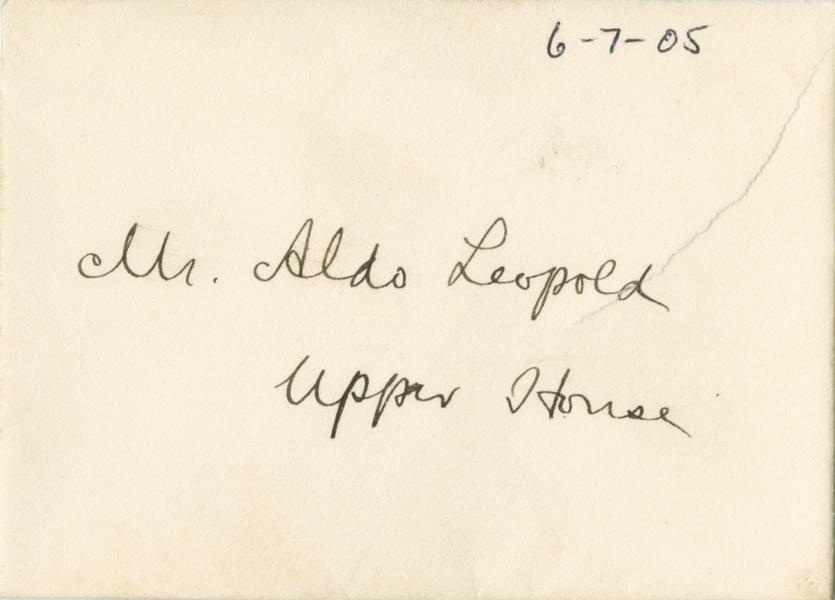 6-7-05
Mr. Aldo Leopold
Upper House